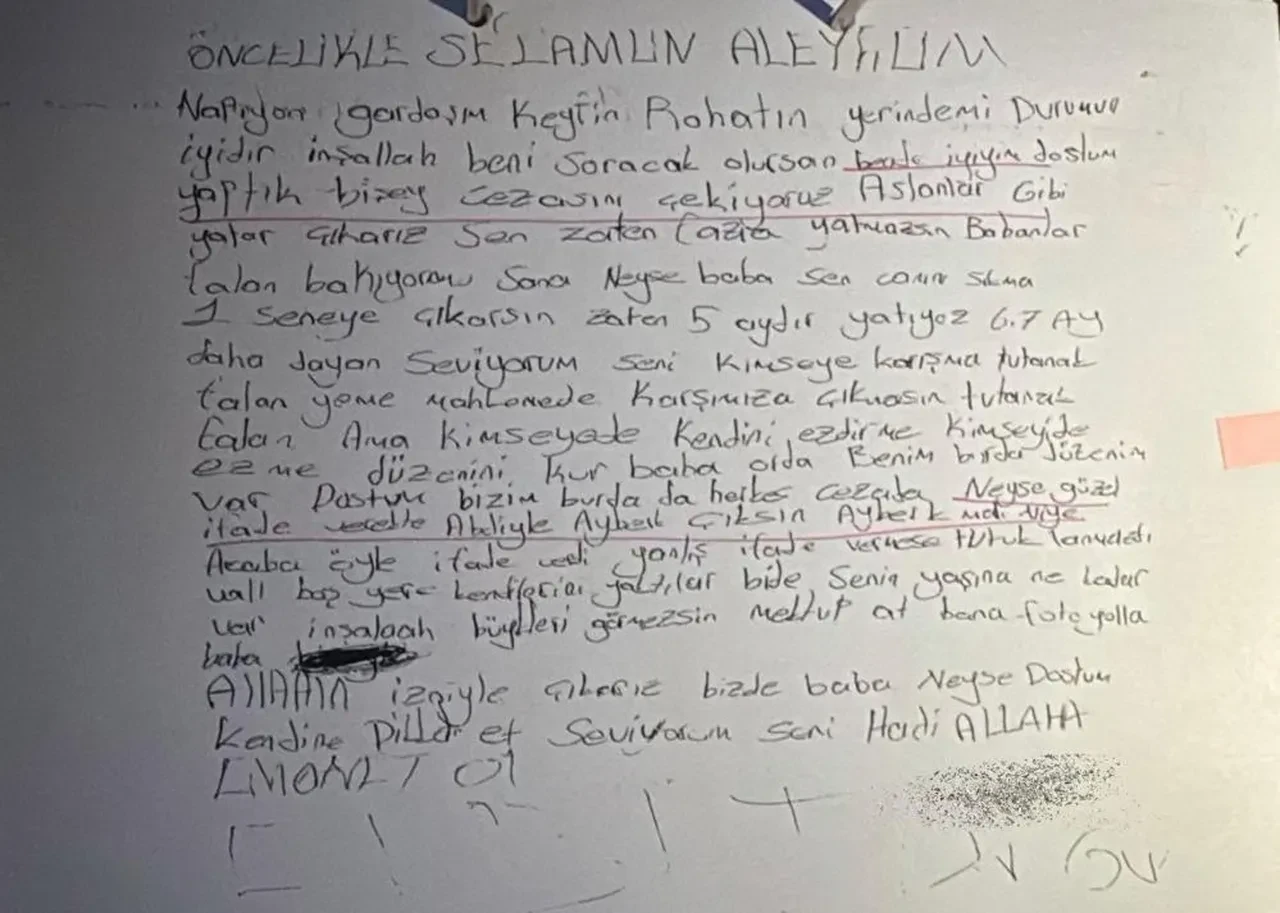 ÖNCELİKLE SELAMUN ALEYKUM
Napıyon gardaşım Keyfin Rohatın yerindemi Durumun
iyidir inşallah beni soracak olursan bende iyiyim dostum
yaptık bizey cezasını çekiyoruz Aslanlar Gibi
yatar çıkarız Sen zaten fazla yatmazsın Babanlar
falan bakıyorou Sana Neyse baba sen canın sıkma
1 seneye çıkarsın zaten 5 aydır yatıyoz 6.7 AY
daha dayan Seviyorum seni Kimseye karışma tutanak
falan yeme mahkemede Karşımıza çıkmasın tutanak
falan Ama Kimseyede Kendini ezdirme Kimseyide
ezme düzenini kur baba orda Benim burda düzenim
var Dostum bizim burda da herkes cezada Neyse güzel
ifade verelle Abeliyle Ayberk Çıksın Ayberk niye
Acaba öyle ifade verdi yanlış ifade vermese tutuk
boş yere kendilerini yaktılar bide Senin yaşına ne kadar
var inşalaah büyükleri görmezsin mektup at bana foto yolla
baba
Allahın izniyle çıkarız bizde baba Neyse Dostum
Kendine Dikkat et Seviyorum seni Hadi ALLAHA
EMONET Ol